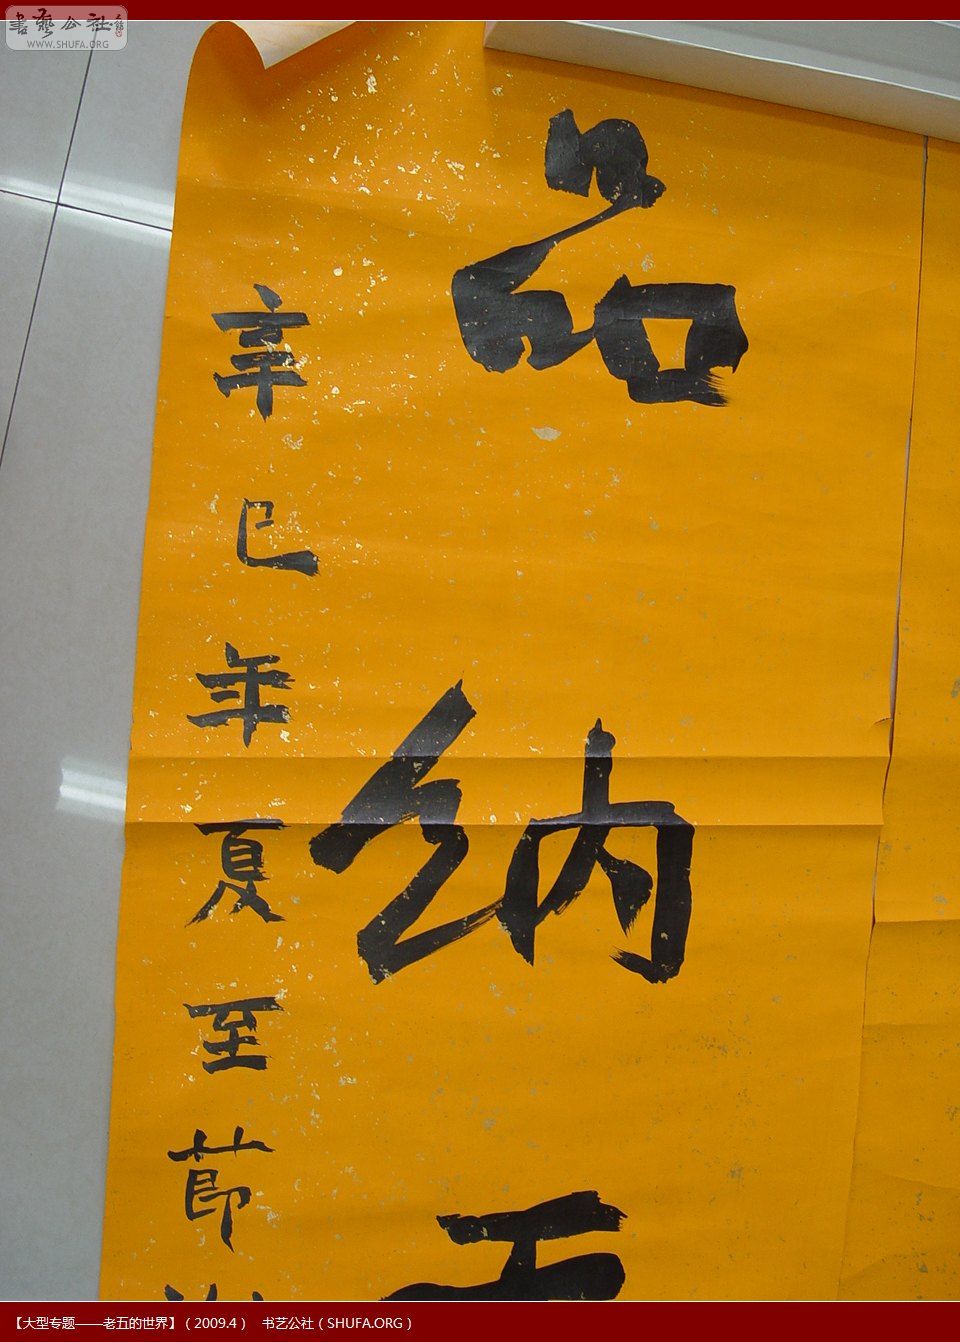 書藝公社
WWW.SHUFA.ORG
品納
辛巳年夏至節
【大型专题——老五的世界】（2009.4） 书艺公社（SHUFA.ORG）